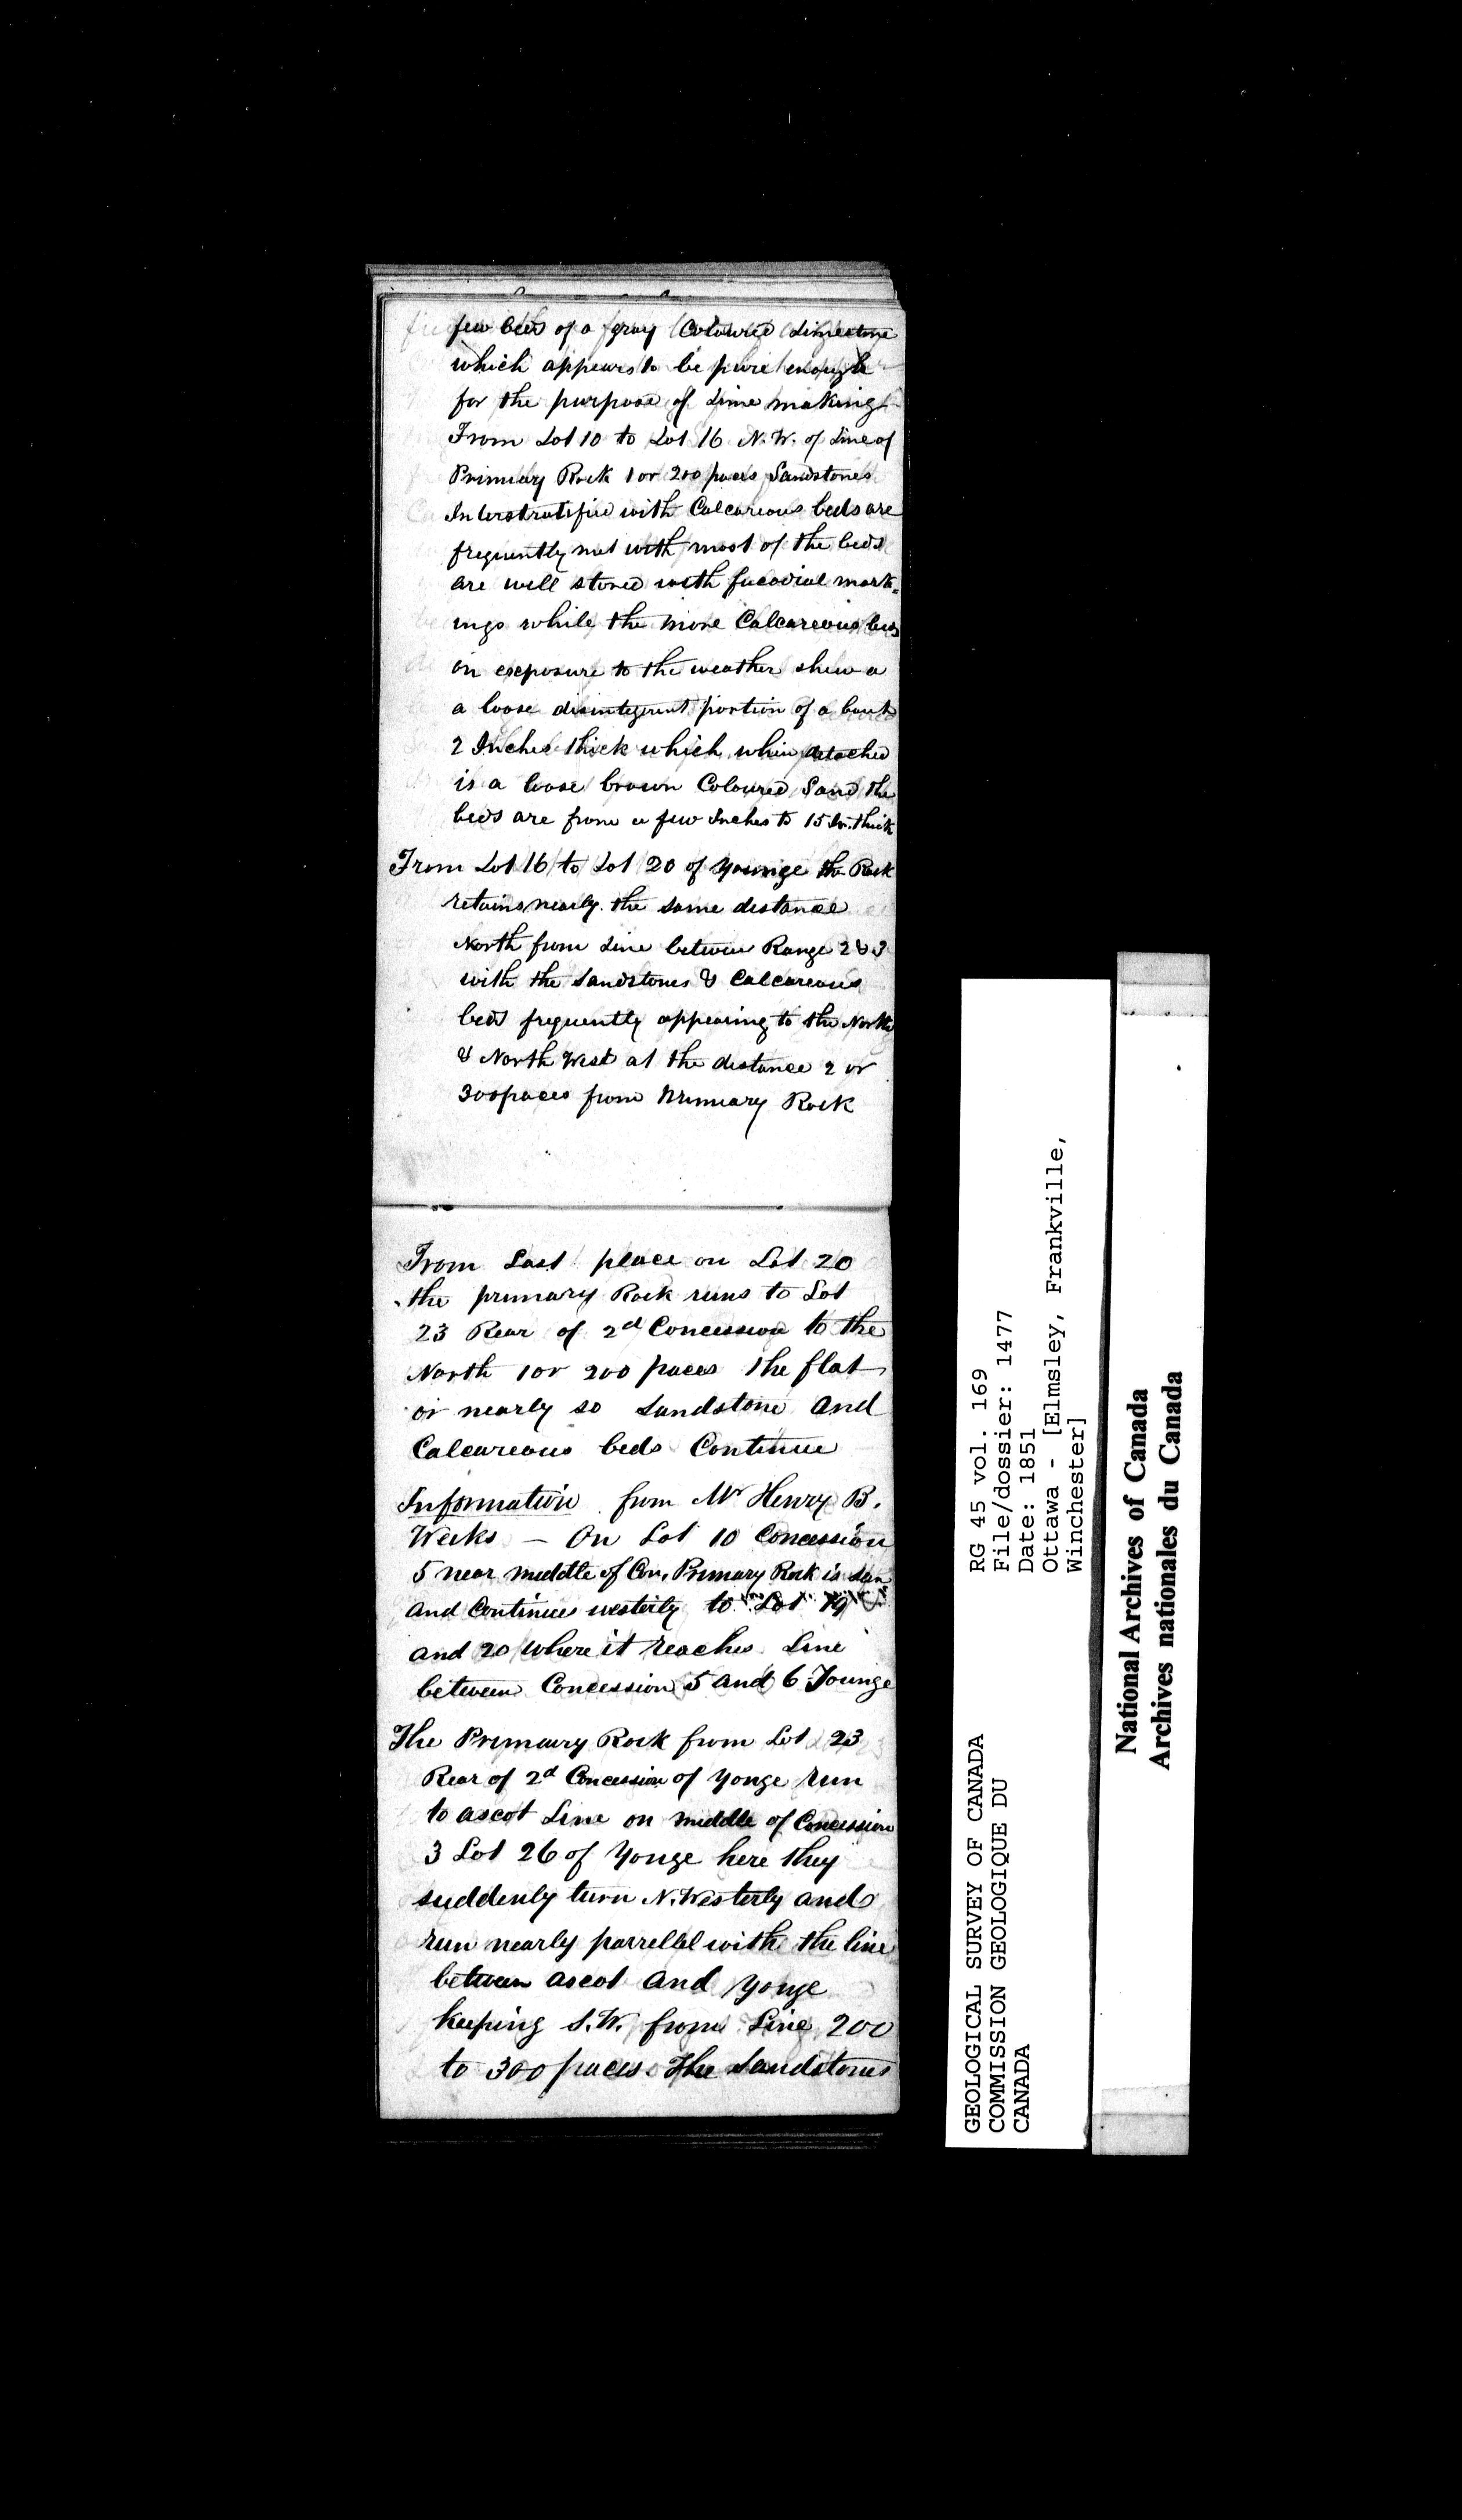 few beds of a gray Coloured Limestone
which appears to be pure enough
for the purpose of Lime making
From Lot 10 to Lot 16 N.W. of Line of
Primary Rock 1 or 200 paces Sandstones
Interstratified with Calcareous beds are
frequently met with most of the beds
are well stored with fucodial mark=
ings while the more Calcareous beds
on exposure to the weather shew a
a loose disintegrent portion of a bout
2 Inches thick which when detached
is a loose brown Coloured Sand the
beds are from a few Inches to 15 In. thick
From Lot 16 to Lot 20 of Younge the Rock
retains nearly the same distance
North from Line between Range 2 & 3
with the Sandstones & Calcareous
beds frequently appearing to the North
& North West at the distance 2 or
300 paces from Primary Rock
From Last place on Lot 20
the primary Rock runs to Lot
23 Rear of 2d Concession to the
North 1 or 200 paces the flat
or nearly so Sandstone and
Calcareous beds Continue
Information from Mr Henry B.
Weeks — On Lot 10 Concession
5 near middle of Con. Primary Rock is
and Continues westerly to Lot 19
and 20 where it reaches Line
between Concession 5 and 6 Younge
The Primary Rock from Lot 23
Rear of 2d Concession of Yonge run
to ascot Line on middle of Concession
3 Lot 26 of Yonge here they
suddenly turn N. Westerly and
run nearly parrellel with the line
between ascot and Yonge
keeping S.W. from Line 200
to 300 paces. The Sandstones
GEOLOGICAL SURVEY OF CANADA
COMMISSION GEOLOGIQUE DU
CANADA
RG 45 vol. 169
File/dossier: 1477
Date: 1851
Ottawa - [Elmsley, Frankville,
Winchester]
National Archives of Canada
Archives nationales du Canada